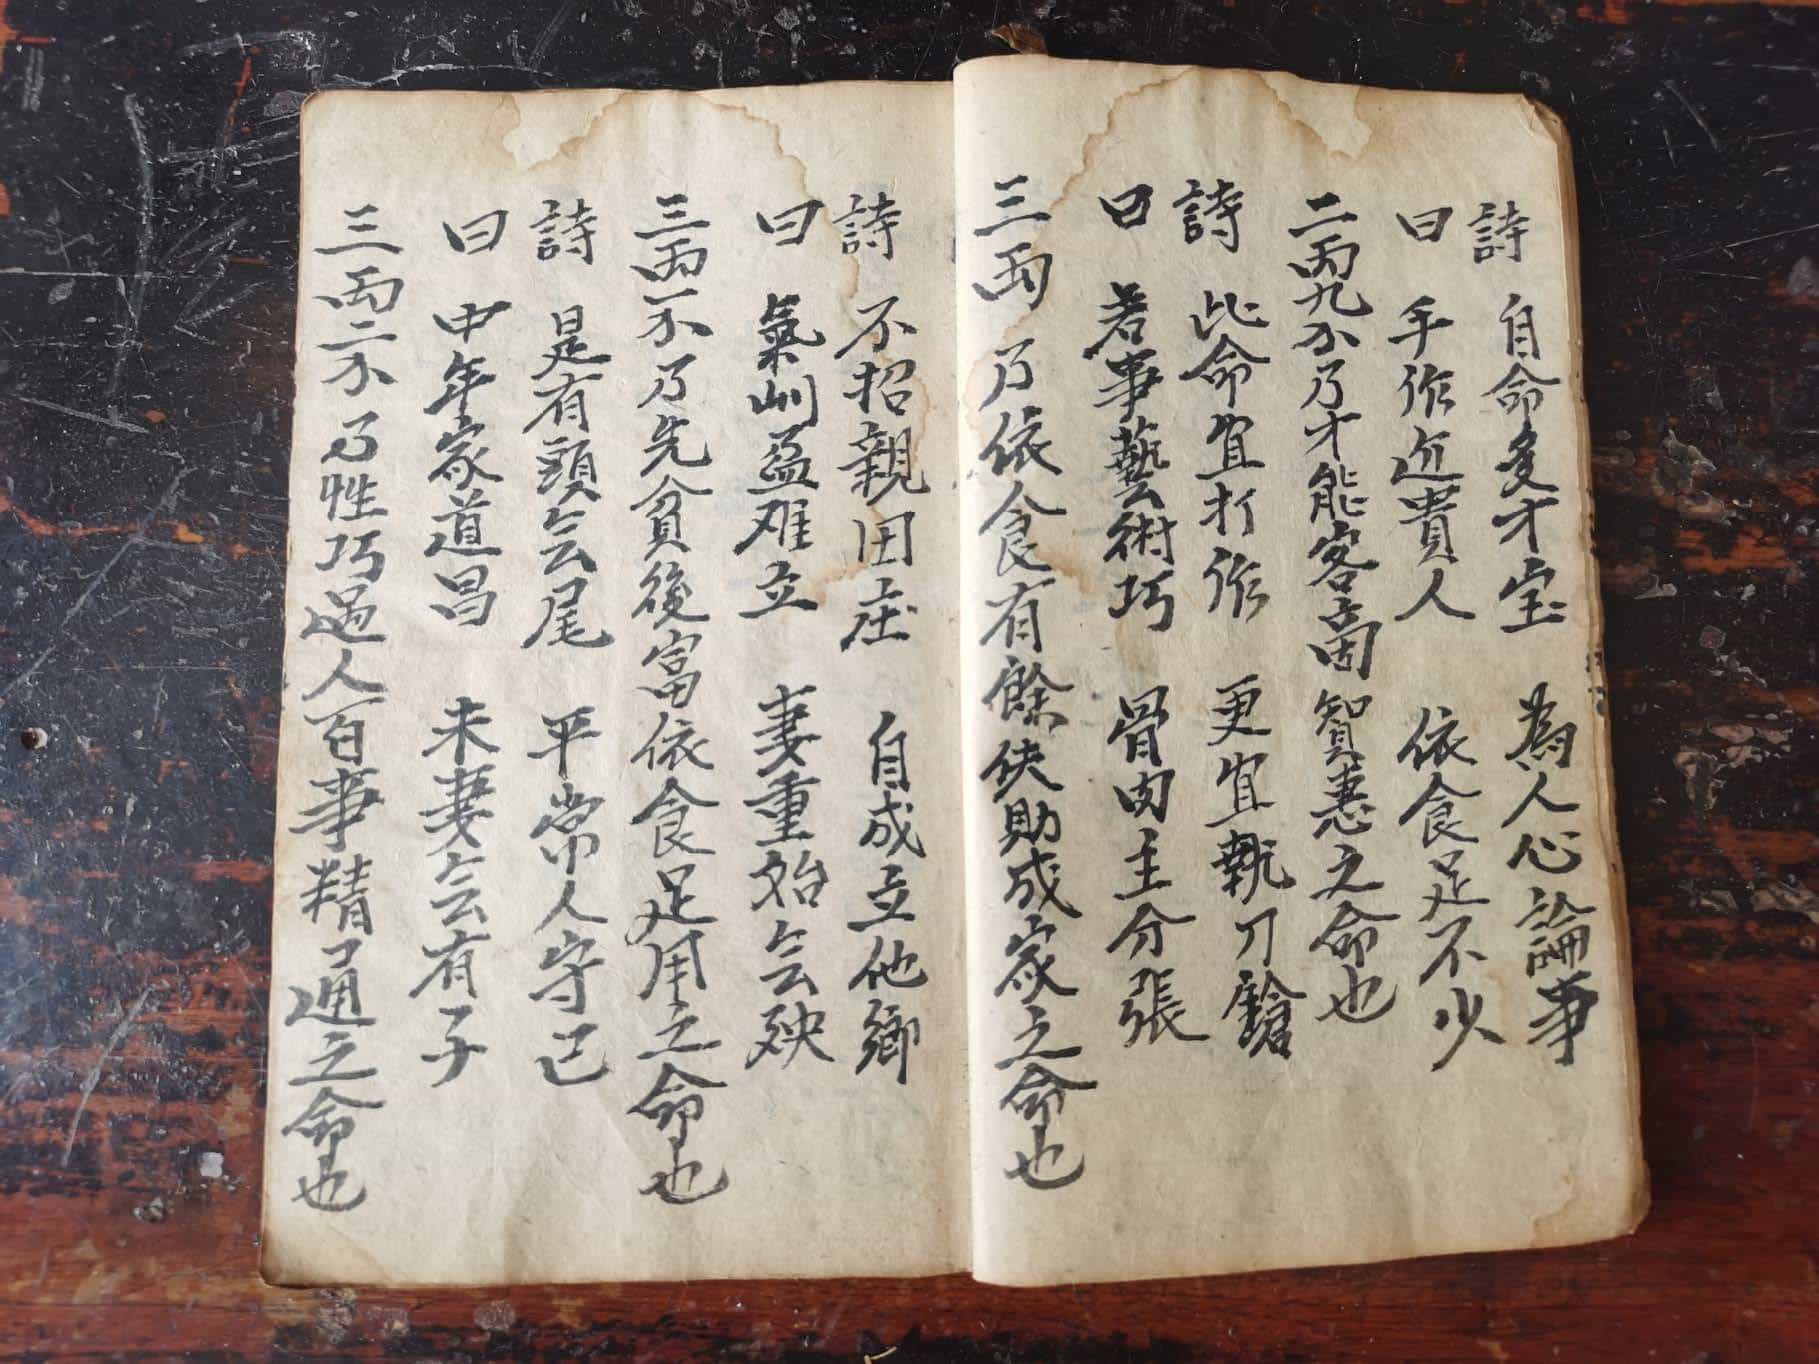 詩 自命多才宝 為人心論事
曰 手作近貴人 依食足不少
二两九分乃才能客商智惠之命也
詩 此命宜打作 更宜執刀鎗
曰 若事藝術巧 骨肉主分張
三两 乃依食有餘 助成家之命也
詩 不招親田庄 自成立他鄉
曰 氣 难立 妻重始 殃
三两一分乃先貧後富依食足用之命也
詩 是有頭 尾 平常人守己
曰 中年家道昌 未妻 有子
三两二分乃性巧過人百事精通之命也